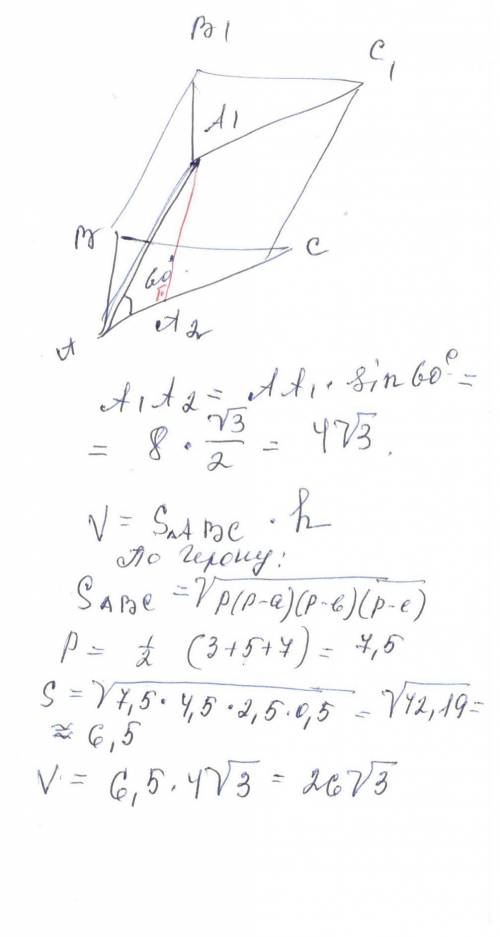 B1
C1
A1
B
C
60
A2
A
A1A2 = AA1 · sin60° =
= 8 · √3/2 = 4√3.
V = S△ABC · h
По Герону:
SABC = √p(p-a)(p-в)(p-c)
P = 1/2 (3+5+7) = 7,5
S = √7,5·4,5·2,5·0,5 = √42,19 =
≈ 6,5
V = 6,5·4√3 = 26√3